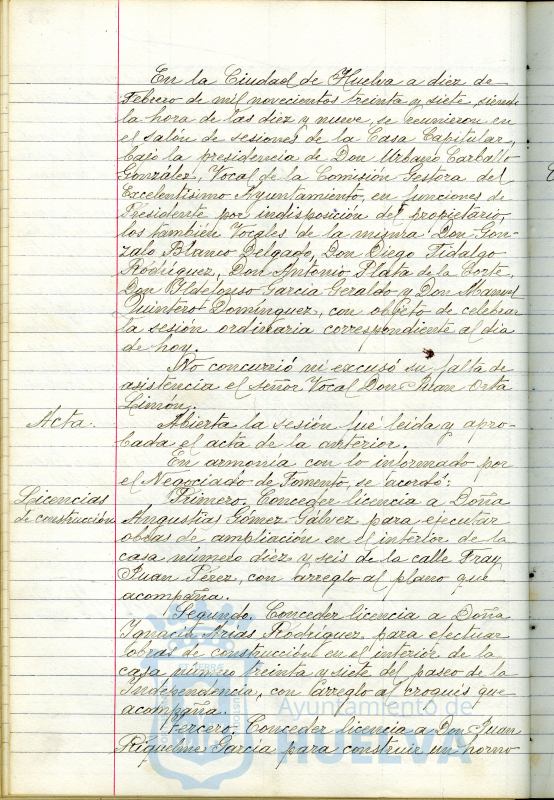 En la Ciudad de Huelva a diez de
Febrero de mil novecientos treinta y siete, siendo
la hora de las diez y nueve, se reunieron en
el salón de sesiones de la Casa Capitular,
bajo la presidencia de Don Urbano Carballo
González, Vocal de la Comisión Gestora del
Excelentísimo Ayuntamiento, en funciones de
Presidente por indisposición del propietario,
los también Vocales de la misma Don Gon-
zalo Blanco Delgado, Don Diego Fidalgo
Rodríguez, Don Antonio Plata de la Corte,
Don Ildefonso García Geraldo y Don Manuel
Quintero Domínguez, con objeto de celebrar
la sesión ordinaria correspondiente al día
de hoy.
No concurrió ni excusó su falta de
asistencia el señor Vocal Don Juan Orta
Limón.
Acta. Abierta la sesión fué leída y apro-
bada el acta de la anterior.
En armonía con lo informado por
el Negociado de Fomento, se acordó:
Licencias Primero. Conceder licencia a Doña
de construcción Angustias Gómez Gálvez para ejecutar
obras de ampliación en el interior de la
casa número diez y seis de la calle Fray
Juan Pérez, con arreglo al plano que
acompaña.
Segundo. Conceder licencia a Doña
Ignacia Arias Rodríguez, para efectuar
obras de construcción en el interior de la
casa número treinta y siete del paseo de la
Independencia, con arreglo al croquis que
acompaña.
Tercero. Conceder licencia a Don Juan
Riquelme García para construir un horno
Ayuntamiento de
HUELVA